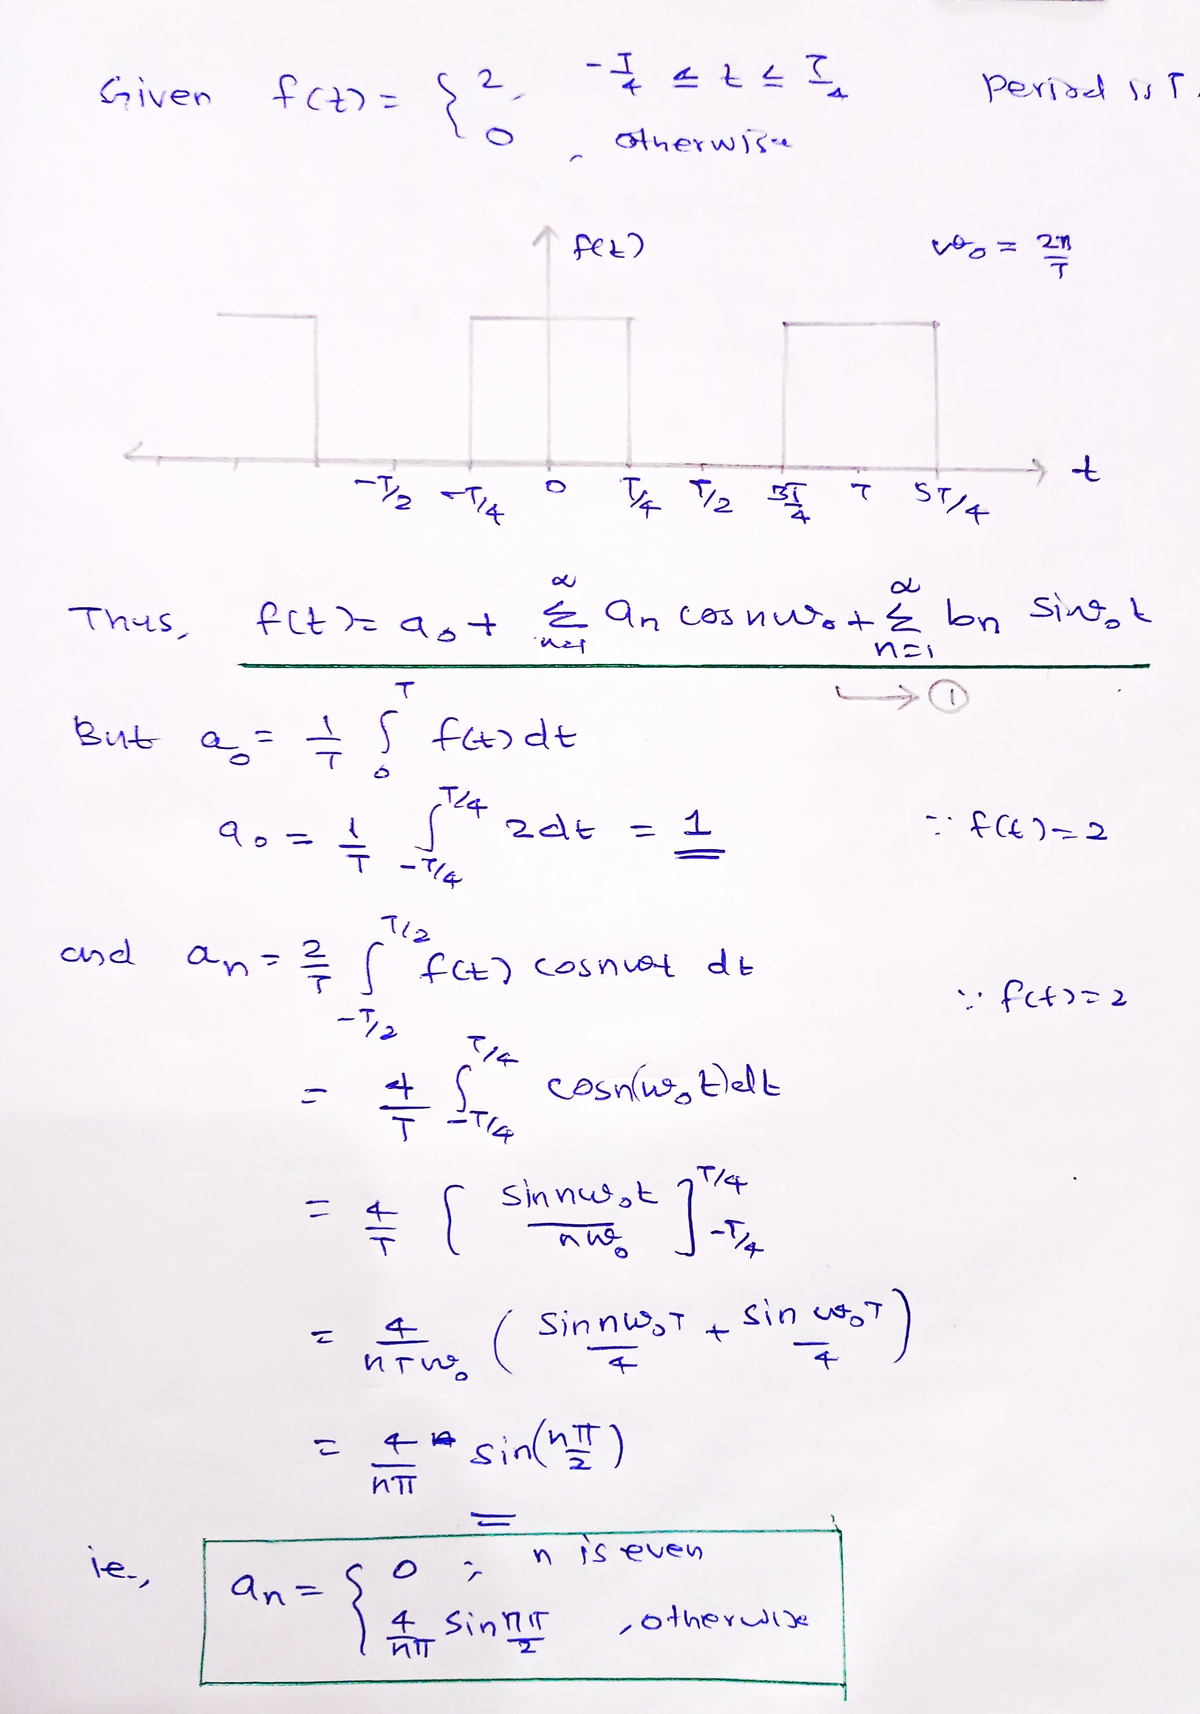 Given f(t) = { 2, -T/4 ≤ t ≤ T/4 Period is T.
0, otherwise
f(t) ω₀ = 2π/T
-T/2 -T/4 0 T/4 T/2 3T/4 T 5T/4 t
Thus, f(t) = a₀ + ∑_{n=1}^{∞} an cos nω₀ + ∑_{n=1}^{∞} bn sin ω₀t
→ ①
But a₀ = 1/T ∫_0^T f(t) dt
a₀ = 1/T ∫_{-T/4}^{T/4} 2dt = 1 ∵ f(t) = 2
and an = 2/T ∫_{-T/2}^{T/2} f(t) cos nωt dt
∵ f(t) = 2
= 4/T ∫_{-T/4}^{T/4} cos n(ω₀t) dt
= 4/T [ sin nω₀t / nω₀ ]_{-T/4}^{T/4}
= 4/nTω₀ ( sin nω₀T/4 + sin ω₀T/4 )
= 4/nπ sin(nπ/2)
ie., an = { 0 ; n is even
4/nπ sin nπ/2 , otherwise